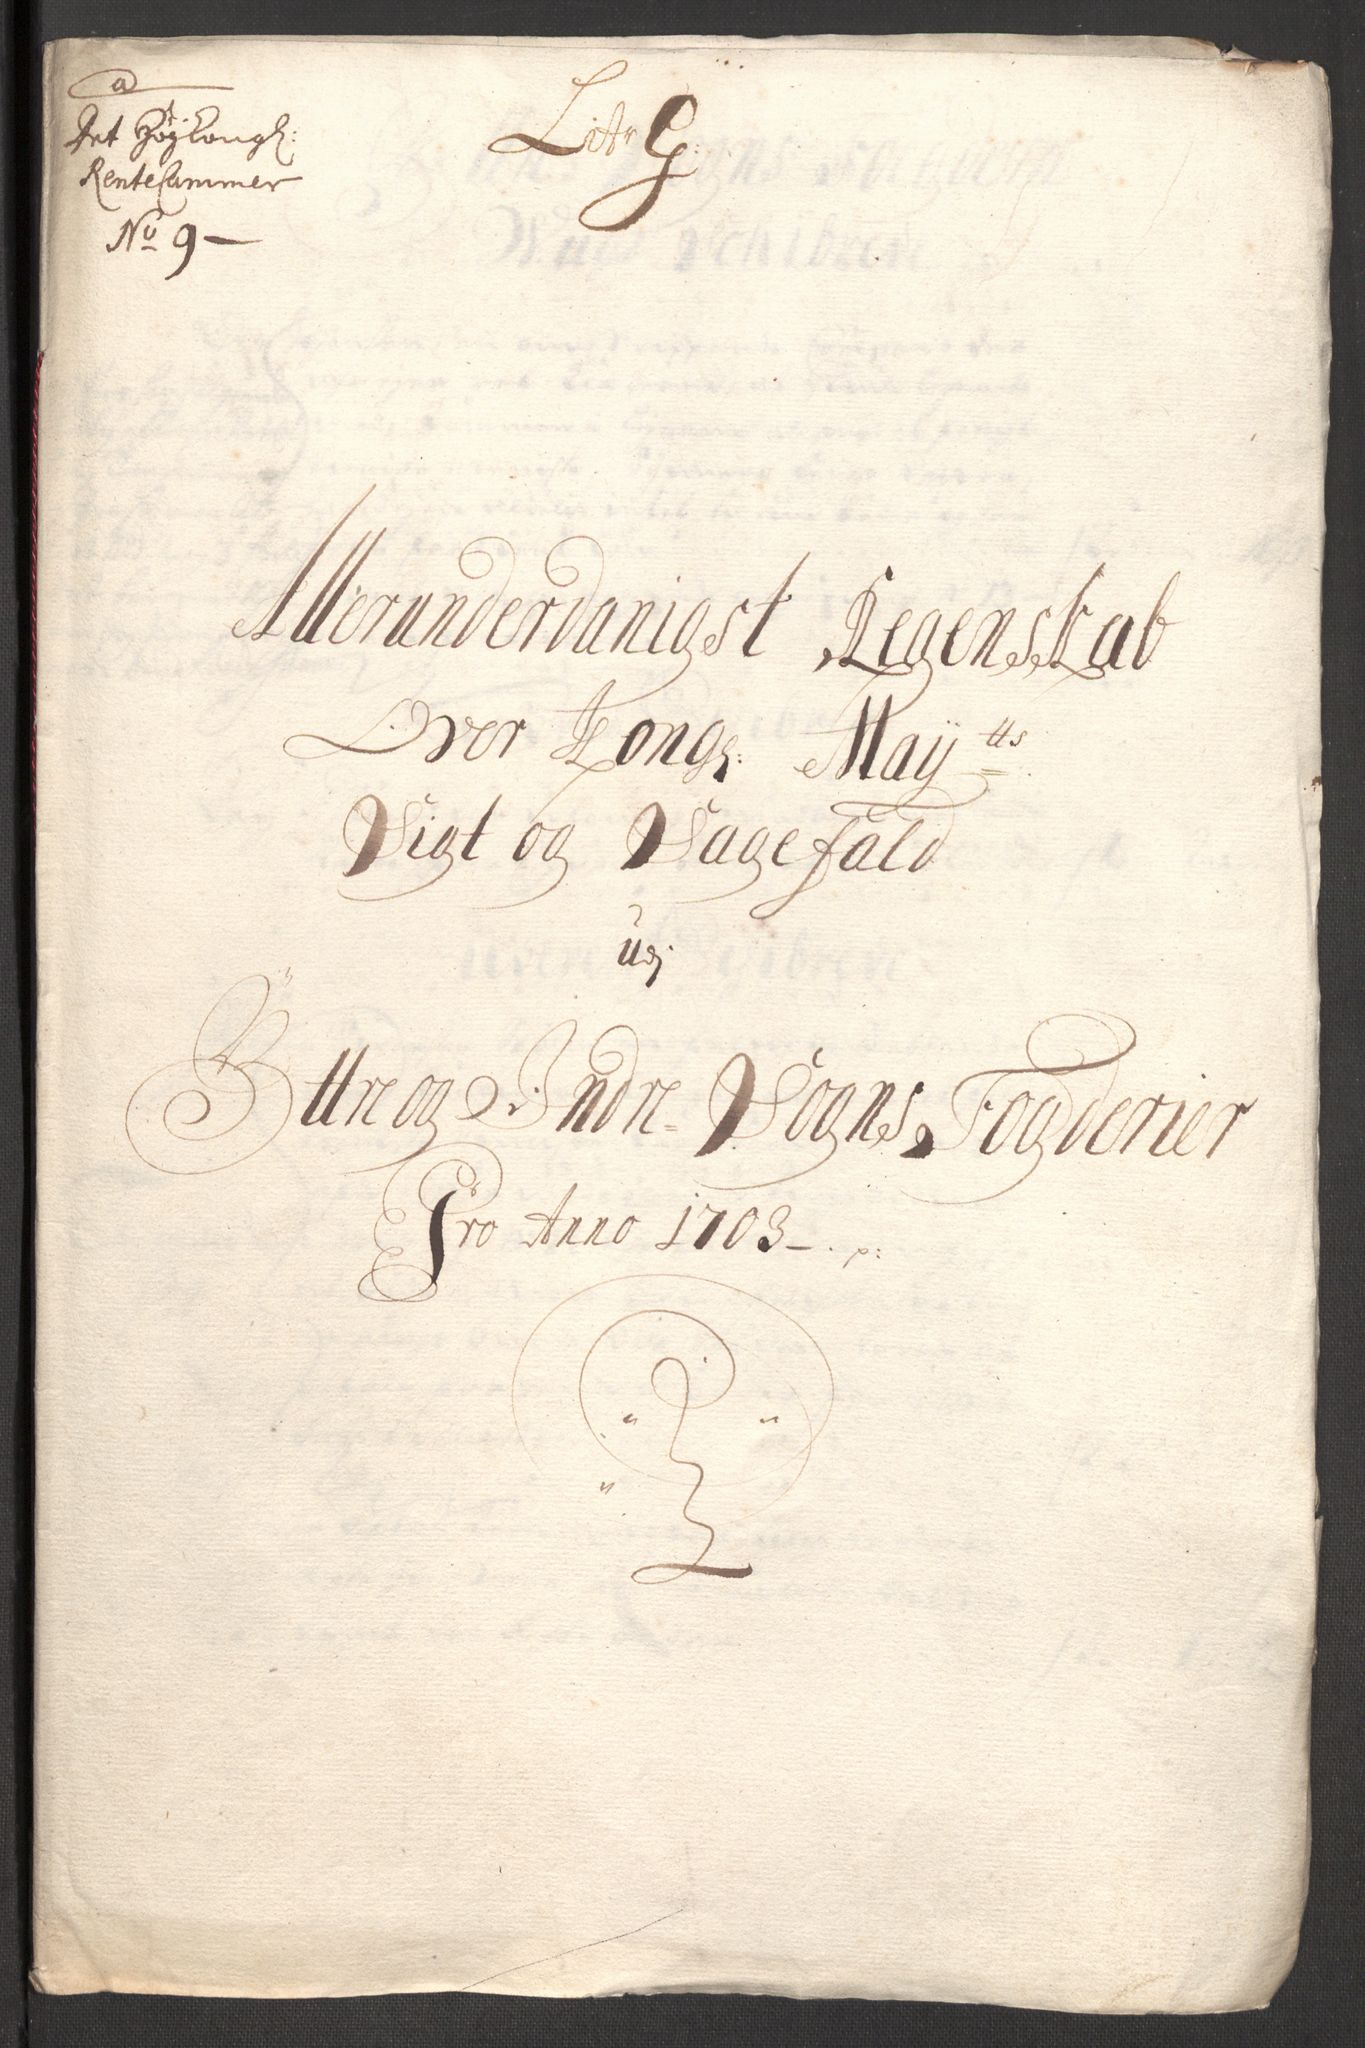 a
Det Højkongl:
RenteCammer
No 9 —
Litr G:
Allerunderdanigst Regenskab
Over Kongl: Mayts
Sigt og Sagefald
udj
Ittre og Indre Sogns Fogderier
Pro Anno 1703 —. p: